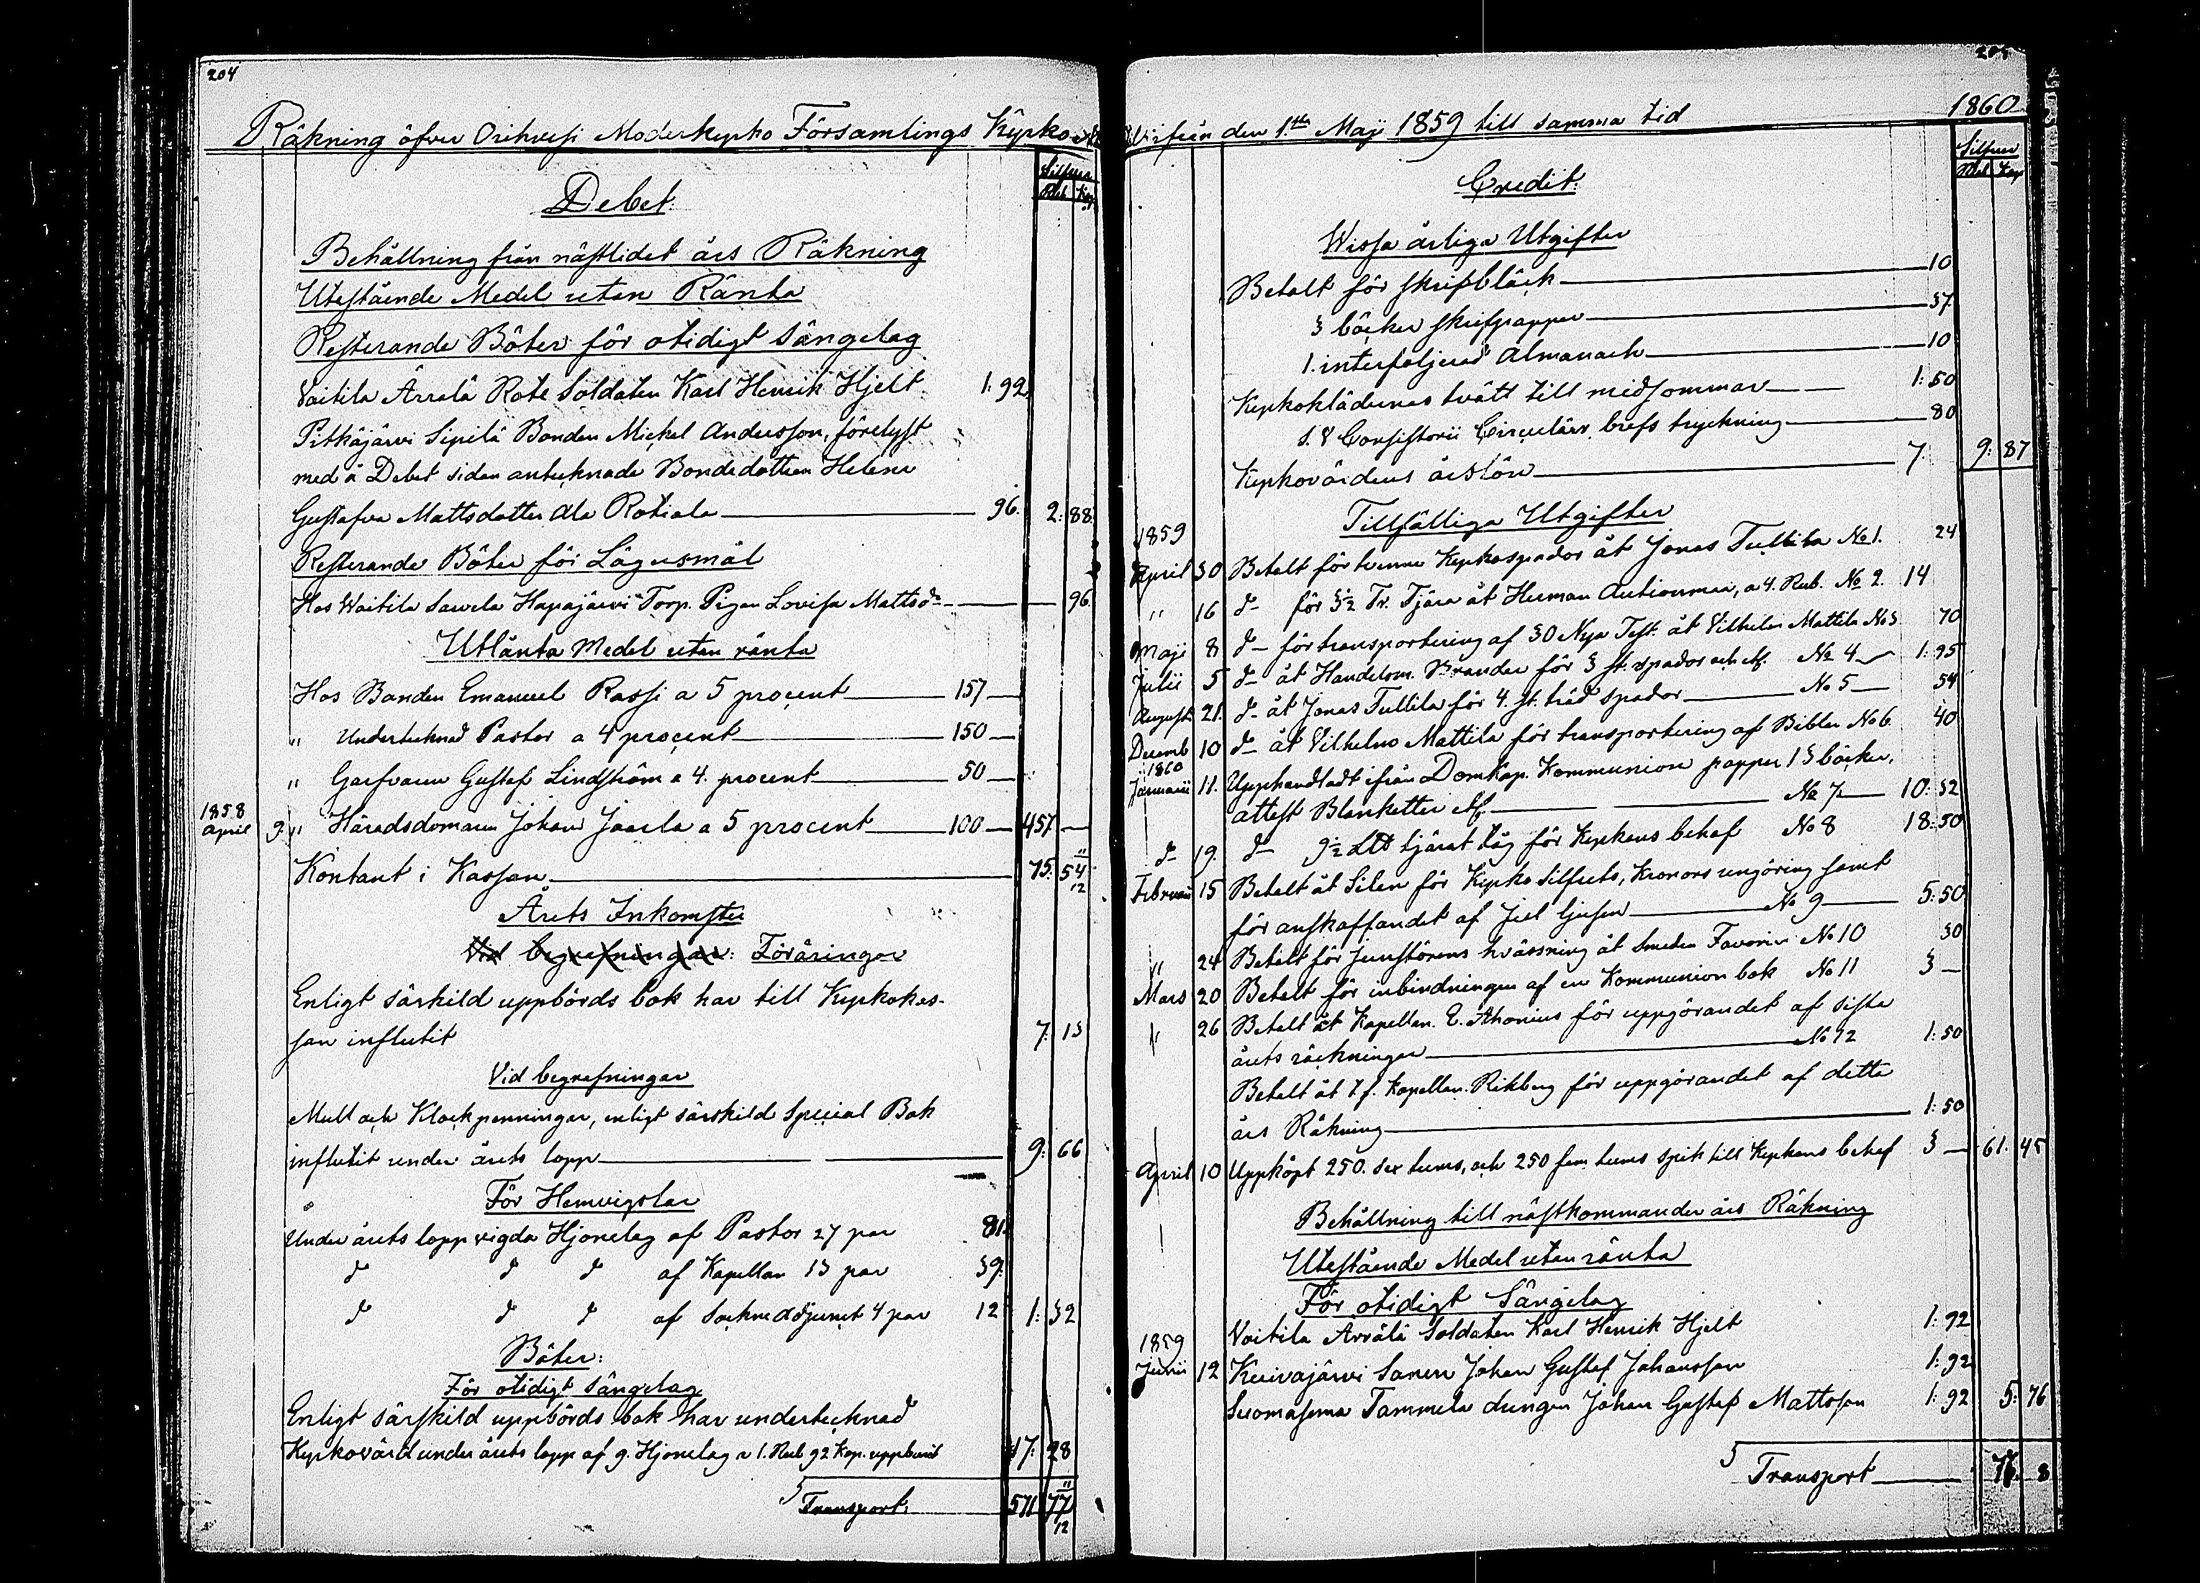 204
Räkning öfver Orihvesi Moderkyrko Församlings Kyrko
Silfver
Rub. Kop.
Debet:
Behållning från nästlidet års Räkning
Utestående Medel utan Ränta
Resterande Böter för otidigt sängelag
Voitila Ärrälä Rote Soldaten Karl Henrik Hjelt 1: 92
Pitkäjärvi Sipilä Bonden Mickel Andersson, förelyst
med å Debet sidan antecknade Bondedottren Helena
Gustafva Mattsdotter Ala Rotiala 96. 2: 88.
Resterande Böter för Lägersmål
Hos Waitila Sawela Hapajärvi Torp. Pigan Lovisa Mattsdr 96.
Utlånta Medel utan ränta
Hos Bonden Emanuel Rassi a 5 procent 157
" Undertecknad Pastor a 4 procent 150
" Garfvaren Gustaf Lindström a 4. procent 50
1858
April 9. " Häradsdomaren Johan Jaarla a 5 procent 100 457
Kontant i Kassan 75. 54 11/12
Årets Inkomster
Vid begrafningar: Föräringar
Enligt särskild uppbörds bok har till Kyrkokas-
san influtit 7: 13
Vid begrafningar
Mull och Klockpenningar, enligt särskild Special Bok
influtit under årets lopp 9: 66
För Hemvigslar
Under årets lopp vigda Hjonelag af Pastor 27 par 81.
d d d af Kapellan 13 par 39.
d d d af Sockneadjunct 4 par 12 1: 32
Böter:
För otidigt sängelag
Enligt särskild uppbörds bok har undertecknad
Kyrkovärd under årets lopp af 9 Hjonelag a 1. Rub. 92 Kop. uppburit 17: 28
Transport. 571 77 11/12
205
ifrån den 1ste Maji 1859 till samma tid 1860
Silfver
Rub. Kop.
Credit:
Wissa årliga Utgifter
Betalt för skrifbläck 10
3 böcker skrifpapper 37
1. interfoljerad Almanach 10
Kyrkoklädernas tvätt till midsommar 1: 50
d. v Consistorii Circulär brefs tryckning 80
Kyrkovärdens årslön 7. 9: 87
Tillfälliga Utgifter
1859
April 30 Betalt för tvenne Kyrkospador åt Jonas Tullila No 1. 24
" 16 d för 3½ Tr. Tjära åt Herman Autionmaa, a 4. Rub. No 2. 14
Maji 8 d för transportering af 30 Nya Test. åt Vilhelm Mattila No 3 70
Julii 5 d åt Handelsm. Brander för 3 st. spador och af. No 4 1: 95
Augusti 21. d åt Jonas Tullila för 4. st. träd spador No 5 54
Decemb 10 d åt Vilhelm Mattila för transportering af Biblar No 6 40
1860
Januarii 11. Upphandladt ifrån Domkap. Kommunion papper 13 böcker,
attest Blanketter af No 7 10: 32
d 19. d 9½ LU tjärat tåg för Kyrkans behof No 8 18: 50
Februarii 15 Betalt åt Silen för Kyrko Silfrets, Kronors rengöring samt
för anskaffandet af Jul ljusen No 9 5: 50
" 24 Betalt för jernstörens hvässning åt Smeden Favorin No 10 30
Mars 20 Betalt för inbindningen af en Kommunion bok No 11 3
" 26 Betalt åt Kapellan. E. Ahonius för uppgörandet af sista
årets räckningar No 12 1: 50
Betalt åt t.f. Kapellan. Rikberg för uppgörandet af detta
års Räkning 1: 50
April 10 Uppköpt 250. sex tums, och 250 fem tums spik till Kyrkans behof 3 61. 45
Behållning till nästkommander års Räkning
Utestående Medel utan ränta
För otidigt Sängelag
Voitila Ärrälä Soldaten Karl Henrik Hjelt 1: 92
1859
Junii 12 Kuivajärvi Sonen Johan Gustaf Johansson 1: 92
Suomasema Tammela drengen Johan Gustaf Mattsson 1: 92 5: 76
Transport 77. 8